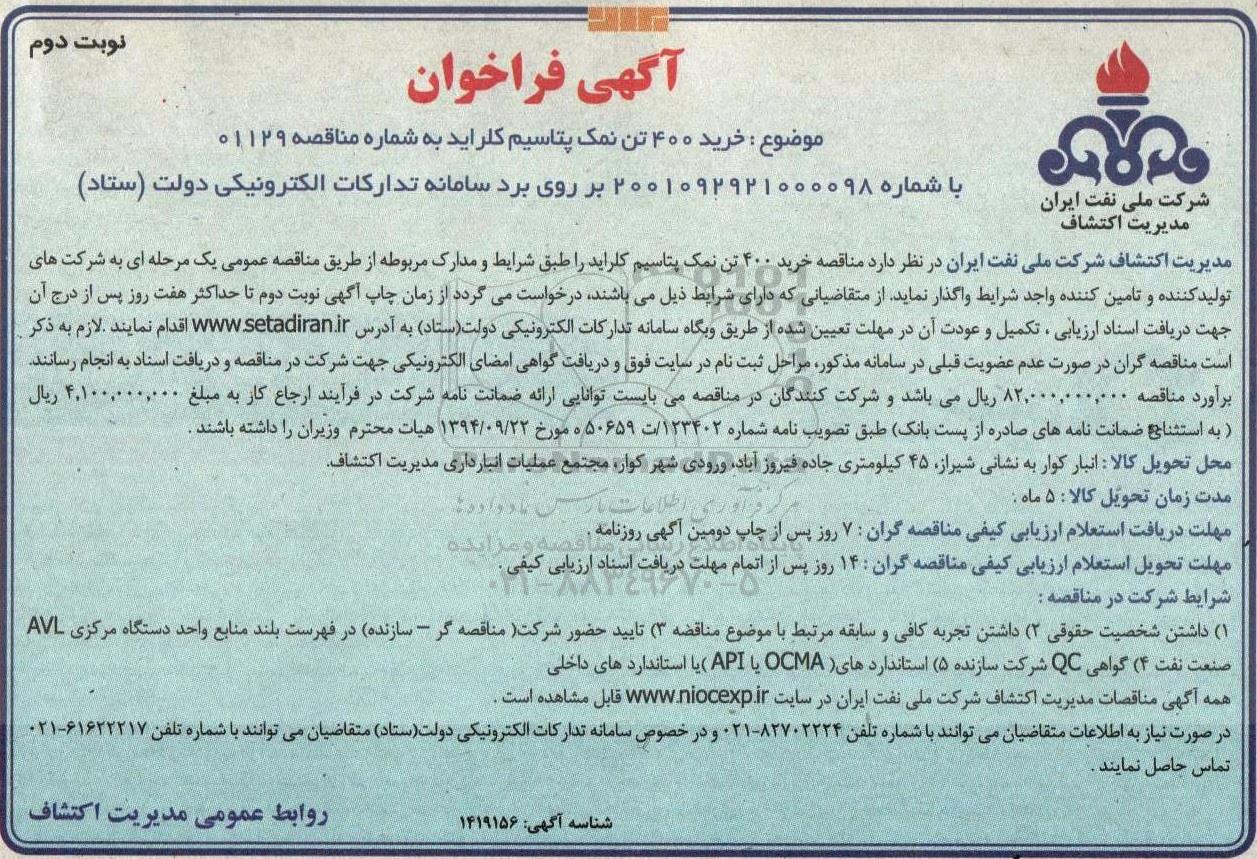 نوبت دوم
آگهی فراخوان
موضوع : خرید ۴۰۰ تن نمک پتاسیم کلراید به شماره مناقصه ۰۱۱۲۹
با شماره ۲۰۰۱۰۹۲۹۲۱۰۰۰۰۹۸ بر روی برد سامانه تدارکات الکترونیکی دولت (ستاد)
شرکت ملی نفت ایران
مدیریت اکتشاف
مدیریت اکتشاف شرکت ملی نفت ایران در نظر دارد مناقصه خرید ۴۰۰ تن نمک پتاسیم کلراید را طبق شرایط و مدارک مربوطه از طریق مناقصه عمومی یک مرحله ای به شرکت های
تولیدکننده و تامین کننده واجد شرایط واگذار نماید. از متقاضیانی که دارای شرایط ذیل می باشند، درخواست می گردد از زمان چاپ آگهی نوبت دوم تا حداکثر هفت روز پس از درج آن
جهت دریافت اسناد ارزیابی ، تکمیل و عودت آن در مهلت تعیین شده از طریق وبگاه سامانه تدارکات الکترونیکی دولت(ستاد) به آدرس www.setadiran.ir اقدام نمایند .لازم به ذکر
است مناقصه گران در صورت عدم عضویت قبلی در سامانه مذکور، مراحل ثبت نام در سایت فوق و دریافت گواهی امضای الکترونیکی جهت شرکت در مناقصه و دریافت اسناد به انجام رسانند.
برآورد مناقصه ۸۲,۰۰۰,۰۰۰,۰۰۰ ریال می باشد و شرکت کنندگان در مناقصه می بایست توانایی ارائه ضمانت نامه شرکت در فرآیند ارجاع کار به مبلغ ۴,۱۰۰,۰۰۰,۰۰۰ ریال
( به استثنای ضمانت نامه های صادره از پست بانک) طبق تصویب نامه شماره ۱۲۳۴۰۲/ت ۵۰۶۵۹ ه مورخ ۱۳۹۴/۰۹/۲۲ هیات محترم وزیران را داشته باشند .
محل تحویل کالا : انبار کوار به نشانی شیراز، ۴۵ کیلومتری جاده فیروز آباد، ورودی شهر کوار، مجتمع عملیات انبارداری مدیریت اکتشاف.
مدت زمان تحویل کالا : ۵ ماه .
مهلت دریافت استعلام ارزیابی کیفی مناقصه گران : ۷ روز پس از چاپ دومین آگهی روزنامه .
مهلت تحویل استعلام ارزیابی کیفی مناقصه گران : ۱۴ روز پس از اتمام مهلت دریافت اسناد ارزیابی کیفی .
شرایط شرکت در مناقصه :
۱) داشتن شخصیت حقوقی ۲) داشتن تجربه کافی و سابقه مرتبط با موضوع مناقصه ۳) تایید حضور شرکت( مناقصه گر – سازنده) در فهرست بلند منابع واحد دستگاه مرکزی AVL
صنعت نفت ۴) گواهی QC شرکت سازنده ۵) استاندارد های( OCMA یا API )یا استاندارد های داخلی
همه آگهی مناقصات مدیریت اکتشاف شرکت ملی نفت ایران در سایت www.niocexp.ir قابل مشاهده است .
در صورت نیاز به اطلاعات متقاضیان می توانند با شماره تلفن ۸۲۷۰۲۲۲۴-۰۲۱ و در خصوص سامانه تدارکات الکترونیکی دولت(ستاد) متقاضیان می توانند با شماره تلفن ۶۱۶۲۲۲۱۷-۰۲۱
تماس حاصل نمایند .
شناسه آگهی: ۱۴۱۹۱۵۶
روابط عمومی مدیریت اکتشاف
۰۲۱-۸۸۳۴۹۶۷۰-۵